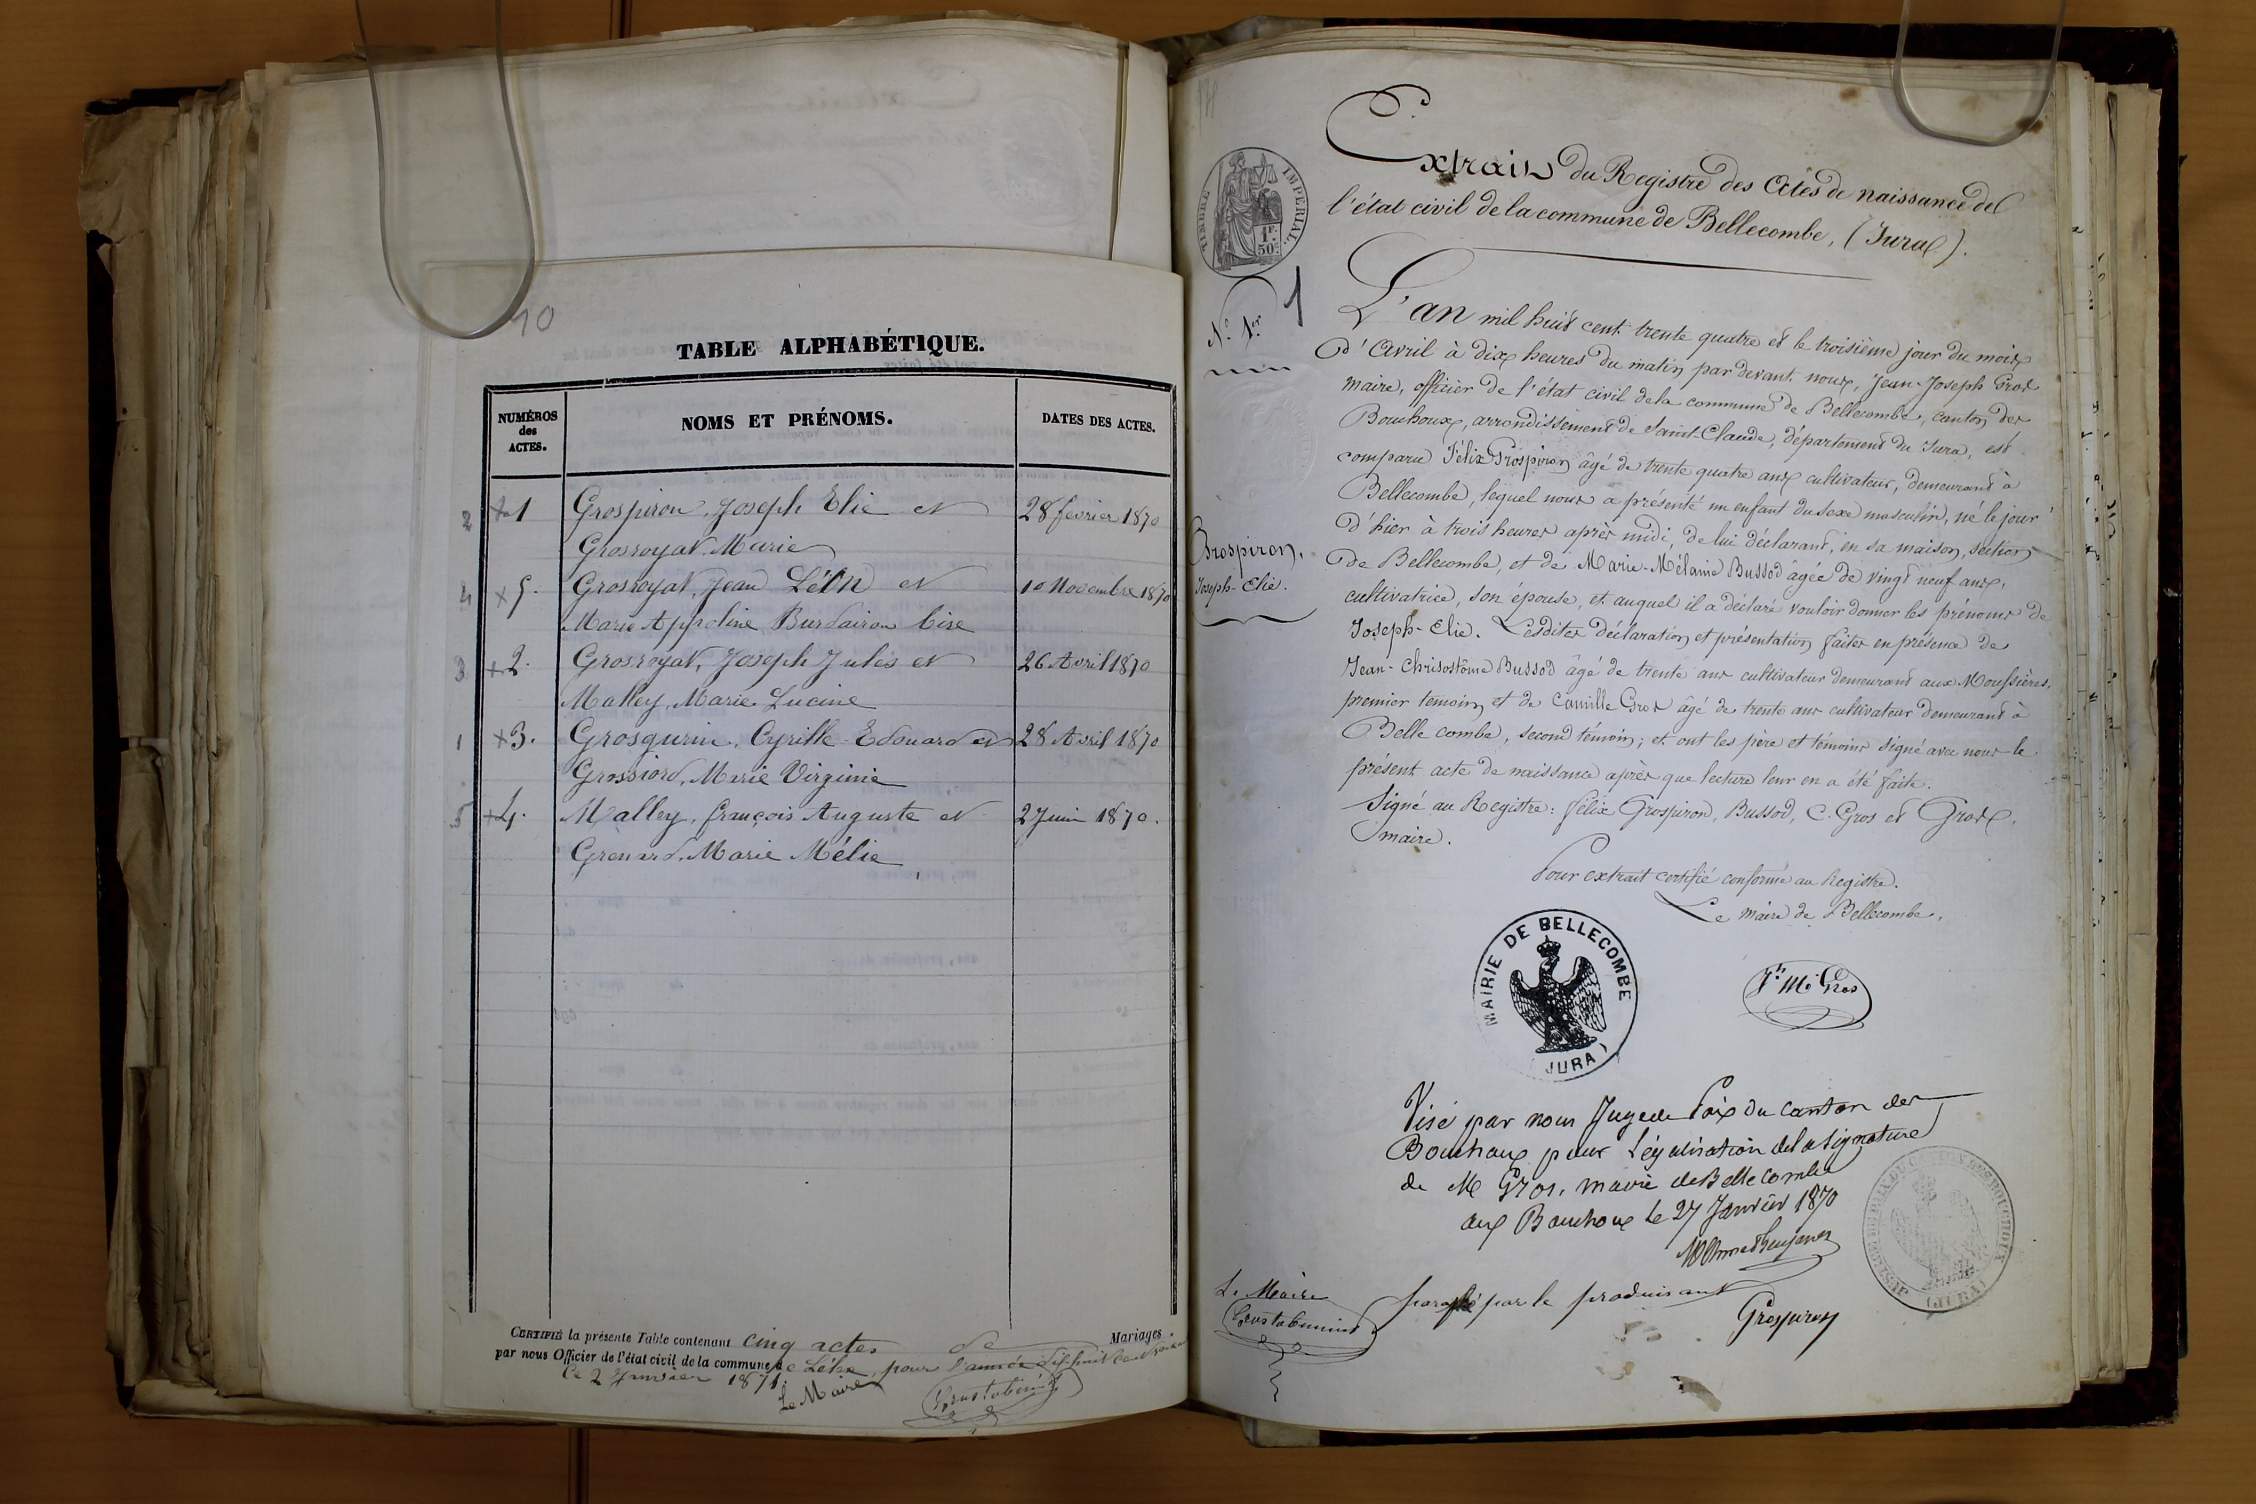 10
TABLE ALPHABÉTIQUE.
NUMÉROS
des
ACTES.
NOMS ET PRÉNOMS.
DATES DES ACTES.
2 x 1 Grospiron, Joseph Elie et 28 février 1870
Grosroyat, Marie
4 x 5. Grosroyat, Jean Léon et 10 Novembre 1870
Marie Appoline Burdairon Cire
3 x 2. Grosroyat, Joseph Jules et 26 Avril 1870
Malley, Marie Lucine
1 x 3. Grosgurin, Cyrille Edouard et 28 Avril 1870
Grossiord, Marie Virginie
5 x 4. Malley, françois Auguste et 2 Juin 1870.
Grenard, Marie Mélie
CERTIFIÉ la présente Table contenant cinq actes de Mariages
par nous Officier de l'état civil de la commune de Lélex, pour l'année
Ce 2 Janvier 1871.
Le Maire
TIMBRE IMPÉRIAL.
1F.
50C.
Extrait du Registre des Actes de naissance de
l'état civil de la commune de Bellecombe, (Jura).
N.° 1.er
1
L'an mil huit cent trente quatre et le troisième jour du mois
d'Avril à dix heures du matin par devant nous, Jean-Joseph Gros
maire, officier de l'état civil de la commune de Bellecombe, canton des
Bouchoux, arrondissement de Saint-Claude, département du Jura, est
comparu Félix Grospiron âgé de trente quatre ans cultivateur, demeurant à
Bellecombe, lequel nous a présenté un enfant du sexe masculin, né le jour
d'hier à trois heures après midi, de lui déclarant, en sa maison, section
Grospiron,
Joseph-Elie.
de Bellecombe, et de Marie-Mélanie Bussod âgée de vingt neuf ans,
cultivatrice, son épouse, et auquel il a déclaré vouloir donner les prénoms de
Joseph-Elie. Lesdites déclaration et présentation faites en présence de
Jean-Chrisostôme Bussod âgé de trente ans cultivateur demeurant aux Moussières,
premier témoin, et de Camille Gros âgé de trente ans cultivateur demeurant à
Belle combe, second témoin; et ont les père et témoins signé avec nous le
présent acte de naissance après que lecture leur en a été faite.
Signé au Registre: félix Grospiron, Bussod, C. Gros et Gros,
maire.
Pour extrait certifié conforme au Registre.
Le maire de Bellecombe,
MAIRIE DE BELLECOMBE
(JURA)
J.h M. Gros
Visé par nous Juge de Paix du canton des
Bouchoux pour légalisation de la signature
de M Gros, maire de Bellecombe
aux Bouchoux le 27 Janvier 1870
(JURA)
Le Maire
paraphé par le produisant
Grospiron